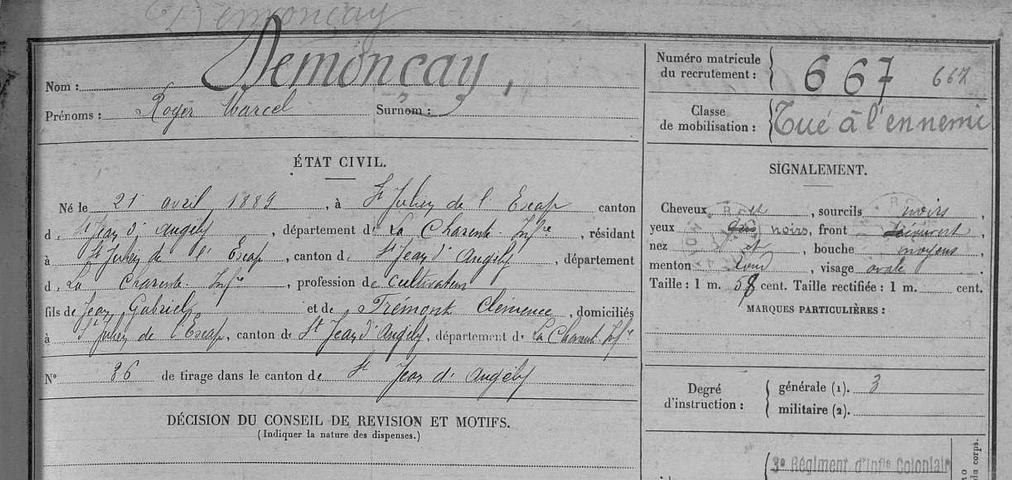 Demonçay
Nom : Demonçay,
Prénoms : Roger Marcel Surnom :
ÉTAT CIVIL.
Né le 21 avril 1889, à St Julien de l'Escap canton
d. St Jean d'Angély, département de La Charente Infre, résidant
à St Julien de l'Escap, canton de St Jean d'Angély, département
d. La Charente Infre, profession de cultivateur
fils de Jean Gabriel et de Trémont Clémence, domiciliés
à St Julien de l'Escap, canton de St Jean d'Angély, département de La Charente Infre
N° 86 de tirage dans le canton de St Jean d'Angély
DÉCISION DU CONSEIL DE REVISION ET MOTIFS.
(Indiquer la nature des dispenses.)
Numéro matricule
du recrutement : 667 667
Classe
de mobilisation : Tué à l'ennemi
SIGNALEMENT.
Cheveux, sourcils noirs,
yeux noirs, front découvert,
nez, bouche moyens,
menton rond, visage ovale
Taille : 1 m. 58 cent. Taille rectifiée : 1 m. cent.
MARQUES PARTICULIÈRES :
Degré
d'instruction :
générale (1). 3
militaire (2).
3e Régiment d'Infie Coloniale
du corps.